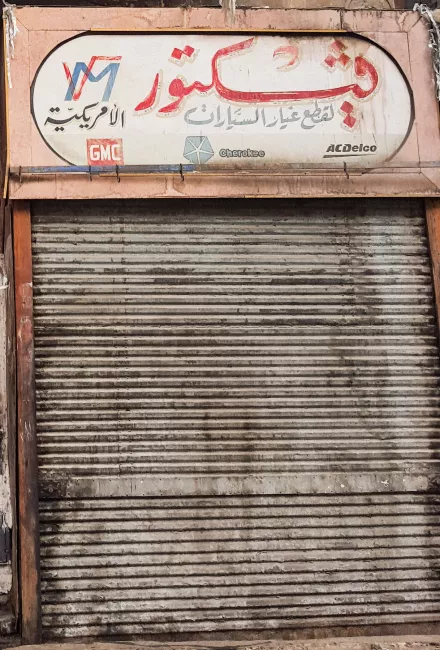 ڤيكتور
لقطع غيار السيارات
VM
الأمريكية
GMC
Cherokee
ACDelco